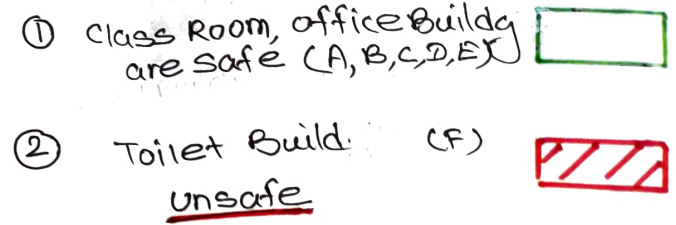 ① Class Room, office Buildg
are safe (A, B, C, D, E)
② Toilet Build. (F)
unsafe